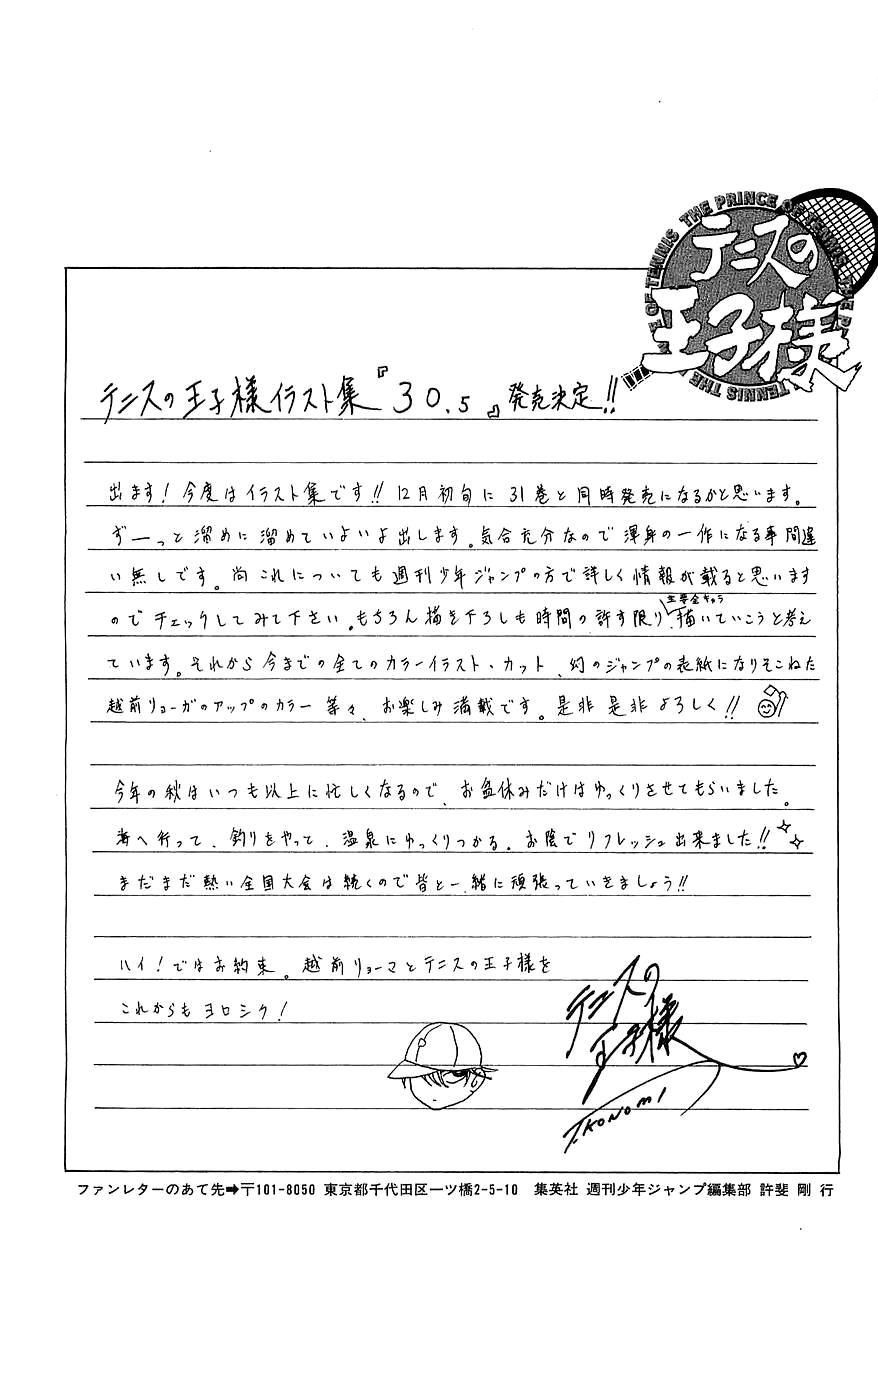 THE PRINCE OF TENNIS THE PRINCE OF TENNIS THE
テニスの
王子様
テニスの王子様イラスト集『30.5』発売決定!!
出ます!今度はイラスト集です!!12月初旬に31巻と同時発売になるかと思います。
ずーっと溜めに溜めていよいよ出します。気合充分なので渾身の一作になる事間違
い無しです。尚これについても週刊少年ジャンプの方で詳しく情報が載ると思います
のでチェックしてみて下さい。もちろん描き下ろしも時間の許す限り、主要全キャラ描いていこうと考え
ています。それから今までの全てのカラーイラスト・カット、幻のジャンプの表紙になりそこねた
越前リョーガのアップのカラー等々、お楽しみ満載です。是非是非よろしく!!
今年の秋はいつも以上に忙しくなるので、お盆休みだけはゆっくりさせてもらいました。
海へ行って、釣りをやって、温泉にゆっくりつかる。お陰でリフレッシュ出来ました!!
まだまだ熱い全国大会は続くので皆と一緒に頑張っていきましょう!!
ハイ!ではお約束。越前リョーマとテニスの王子様を
これからもヨロシク!
テニスの
王子様
T.KONOMI
ファンレターのあて先➡〒101-8050 東京都千代田区一ツ橋2-5-10 集英社 週刊少年ジャンプ編集部 許斐 剛 行